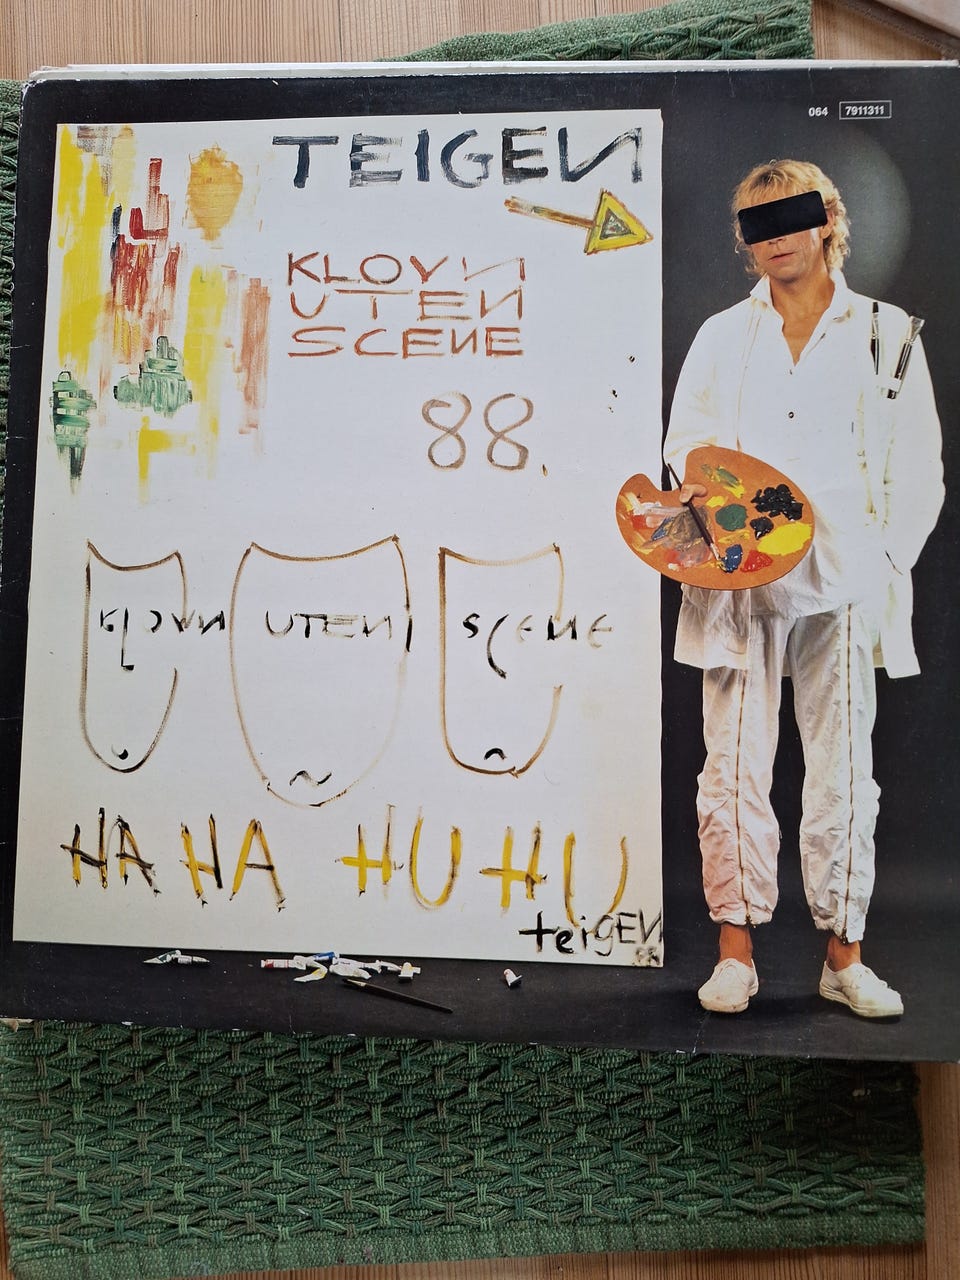 064 7911311
TEIGEN
KLOVN
UTEN
SCENE
88
KLOVN UTEN SCENE
HA HA HU HU
teigEN
88